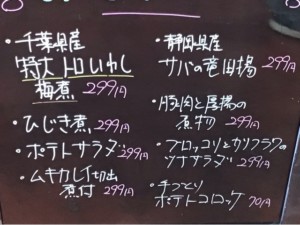 ・千葉県産
特大トロいわし
梅煮 299円
・ひじき煮 299円
・ポテトサラダ 299円
・ムキカレイ切出
煮付 299円
・静岡県産
サバの竜田揚
299円
・豚肉と厚揚の
煮物 299円
・ブロッコリとカリフラワの
ツナサラダ 299円
・手づくり
ポテトコロッケ 70円